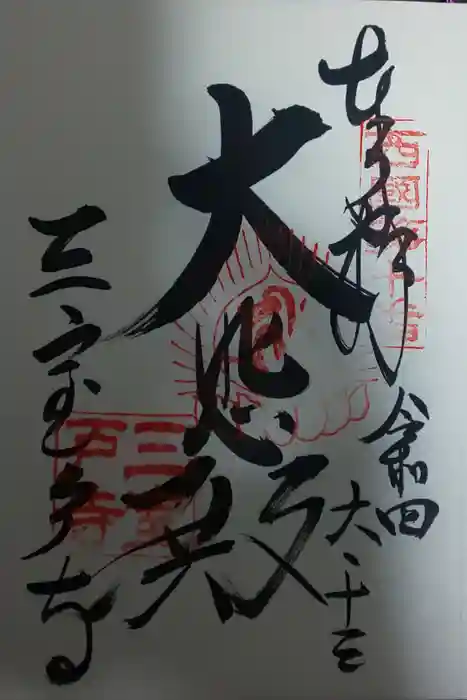 奉拝
西國第十番
令和四
六、十三
大悲殿
三室戸寺
三室
戸寺